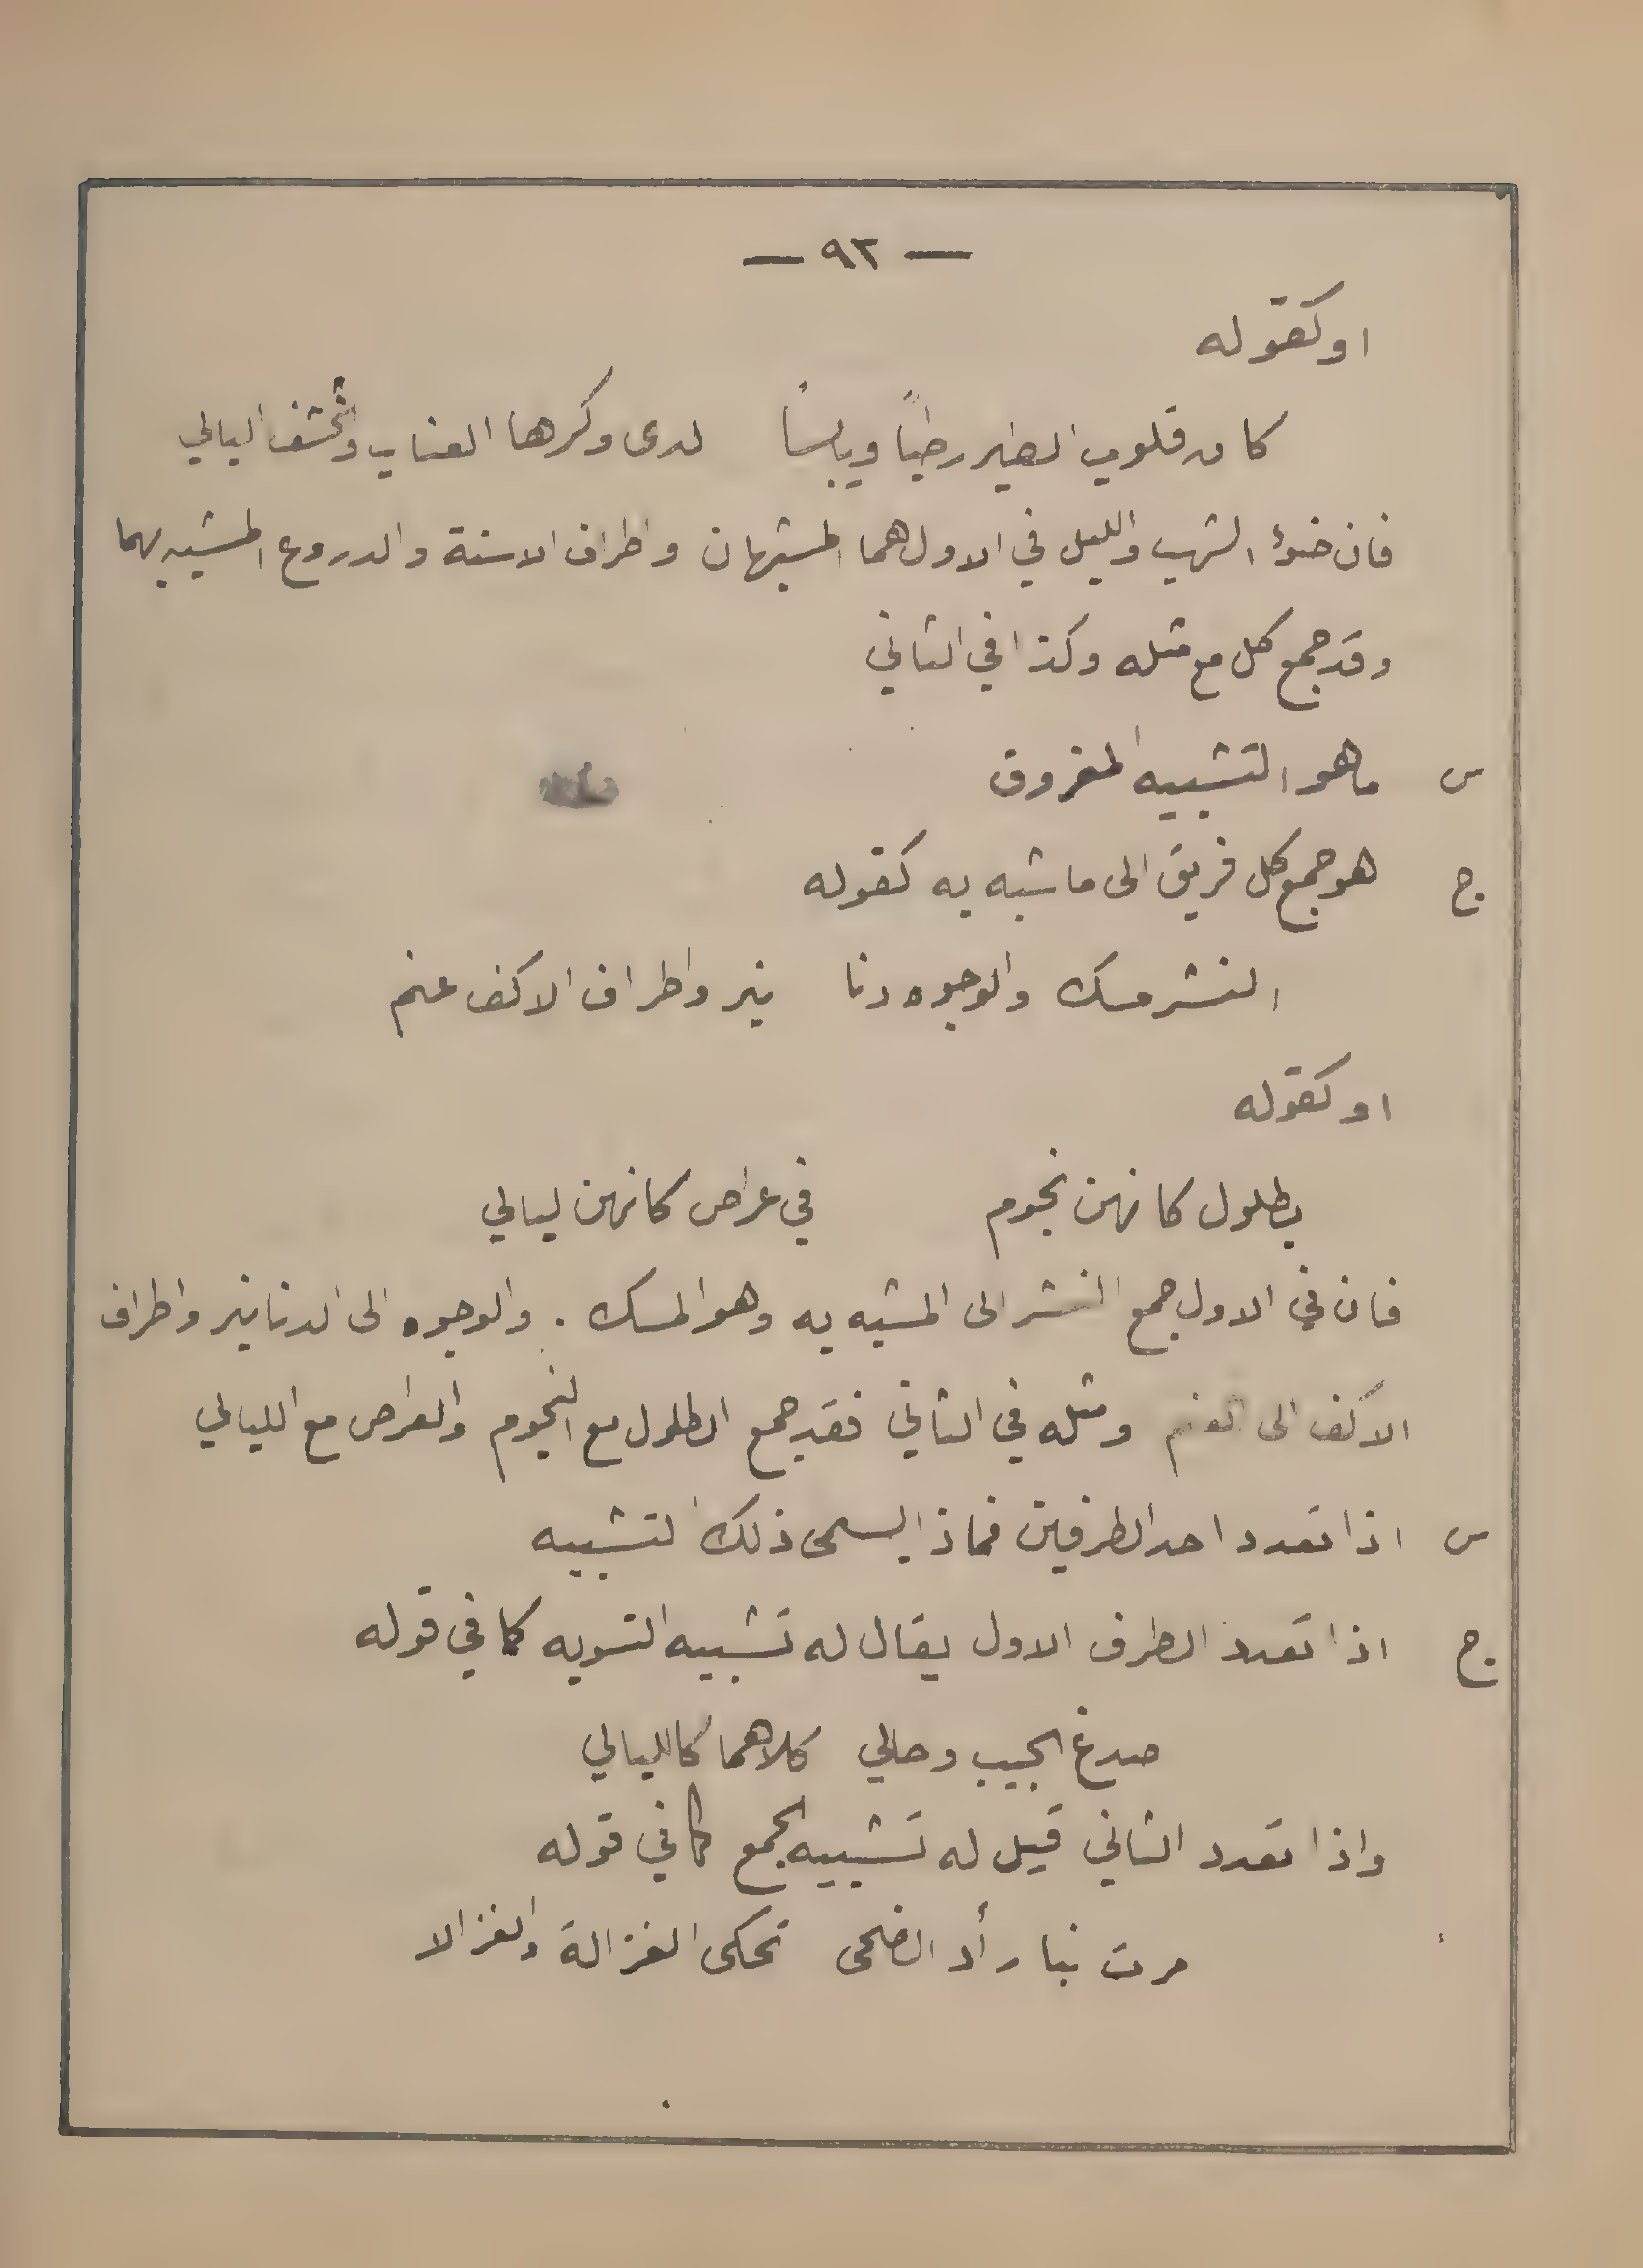 — ٩٢ —
او كقوله
كان قلوب الطير رطباً ويابساً لدى وكرها العناب والحشف البالي
فان ضوء الشهب والليل في الاول هما المشبهان واطراف الاسنة والدروع المشبه بهما
وقد جمع كل مع مثله وكذا في الثاني
س ما هو التشبيه المفروق
ج هو جمع كل فريق الى ما شبه به كقوله
النشر مسك والوجوه دنا نير واطراف الاكف عنم
او كقوله
بطلول كانهن نجوم في عراص كانهن ليالي
فان في الاول جمع النشر الى المشبه به وهو المسك . والوجوه الى الدنانير واطراف
الاكف الى العنم ومثله في الثاني فقد جمع الطلول مع النجوم والعراص مع الليالي
س اذا تعدد احد الطرفين فماذا يسمى ذلك التشبيه
ج اذا تعدد الطرف الاول يقال له تشبيه التسويه كما في قوله
صدغ الحبيب وحالي كلاهما كالليالي
واذا تعدد الثاني قيل له تشبيه الجمع كما في قوله
مرت بنا رأد الضحى تحكى الغزالة والغزالا